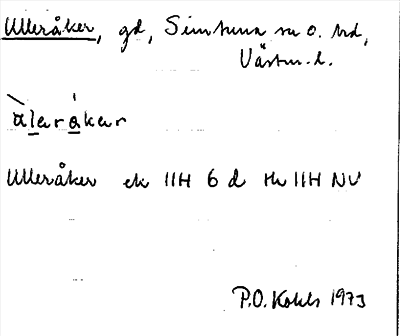 Ulleråker, gd, Simtuna sn o. hd,
Västm. l.
àleråkar
Ulleråker ek 11H 6 d Hr 11H NV
P.O. Kohls 1973